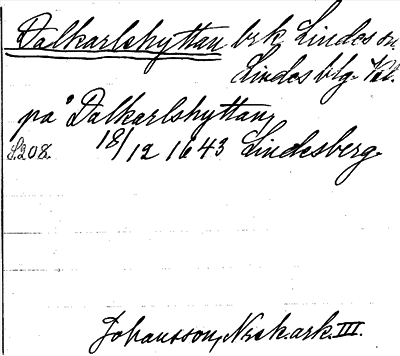 Dalkarlshyttan brk, Lindes sn.
Lindesbg. Vtl.
på Dalkarlshyttan,
S.208. 18/12 1643 Lindesberg.
Johansson, Nesk.ark. III.